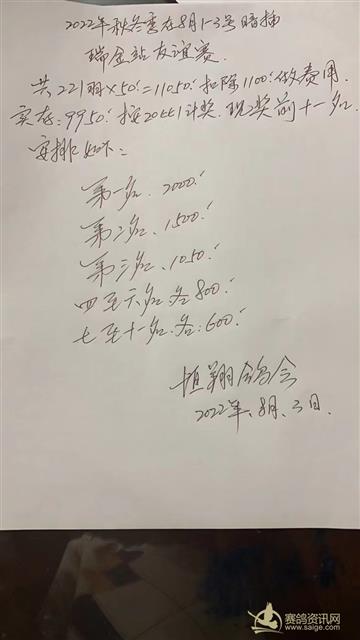 2022年秋冬季在8月1-3号暗插
瑞金站友谊赛.
共221羽×50=11050扣除1100做费用
实存:9950按20比1计奖.现奖前十一名.
安排如下:
第一名、2000
第二名、1500
第三名、1050
四至六名.各800
七至十一名.各:600
恒翔鸽会
2022年、8月、3日.
赛鸽资讯网
www.saige.com